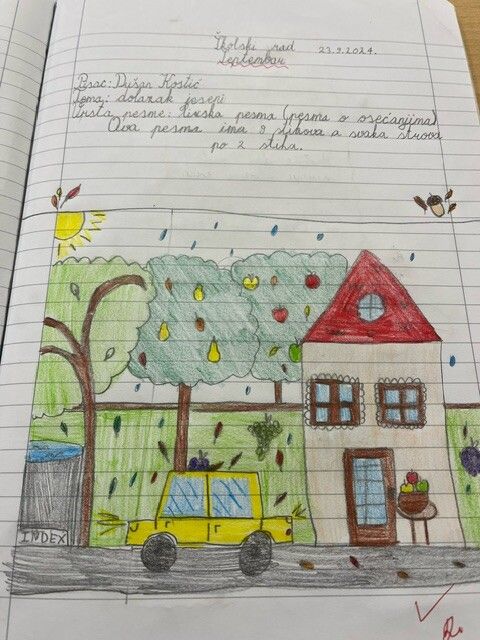 Školski rad 23.9.2024.
Septembar
Pisac: Dušan Kostić
Tema: dolazak jeseni
Vrsta pesme: lirska pesma (pesma o osećanjima)
Ova pesma ima 8 stihova a svaka strofa
po 2 stiha.
INDEX